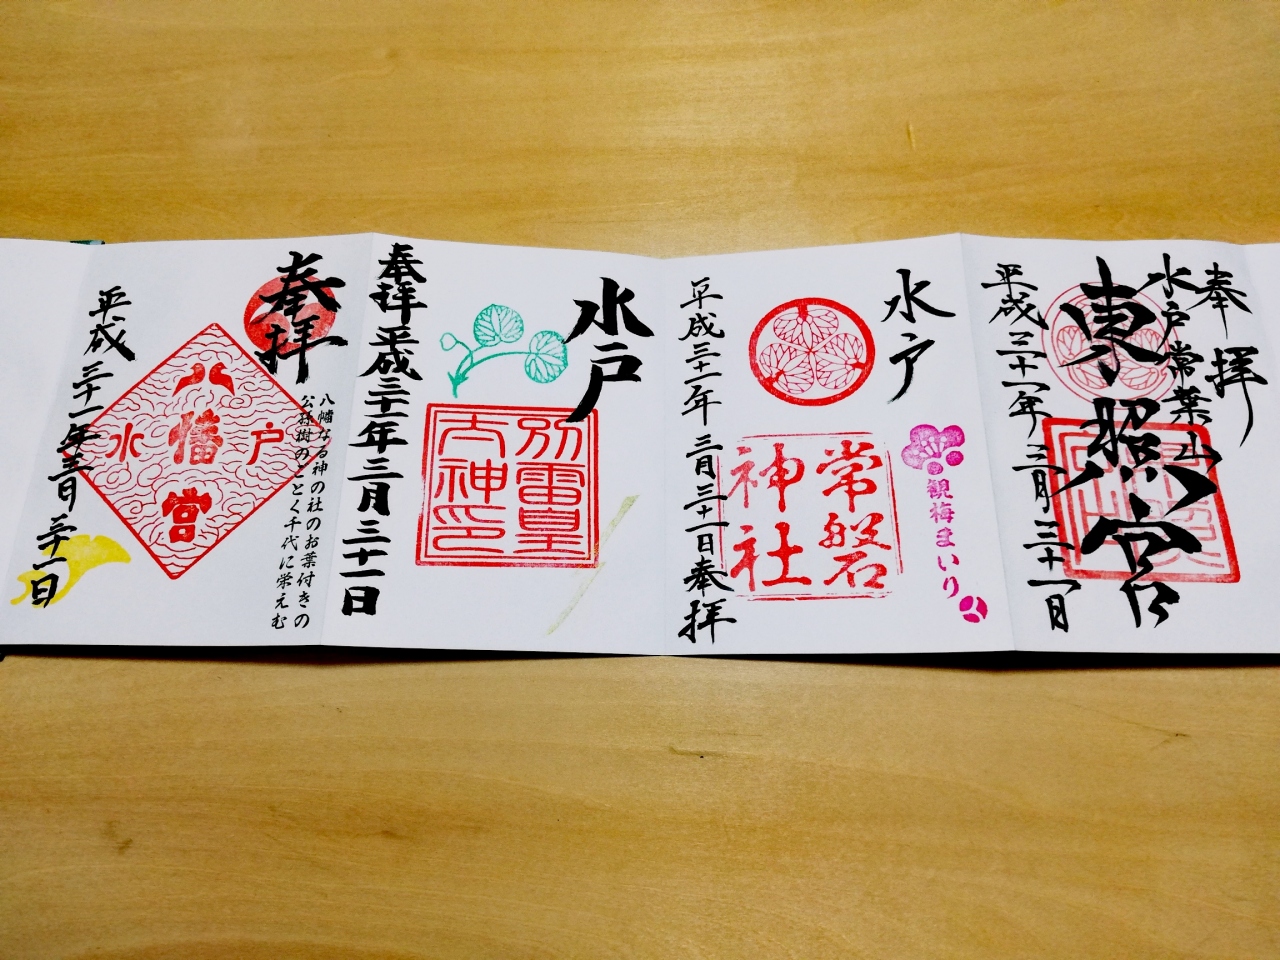 奉拝
水戸常葉山
東照宮
平成三十一年三月三十一日
水戸
観梅まいり
常磐
神社
平成三十一年三月三十一日奉拝
水戸
別雷皇
太神印
奉拝平成三十一年三月三十一日
奉拝
八幡なる神の社のお葉付きの
公孫樹のごとく千代に栄えむ
八幡宮
水戸
平成三十一年三月三十一日